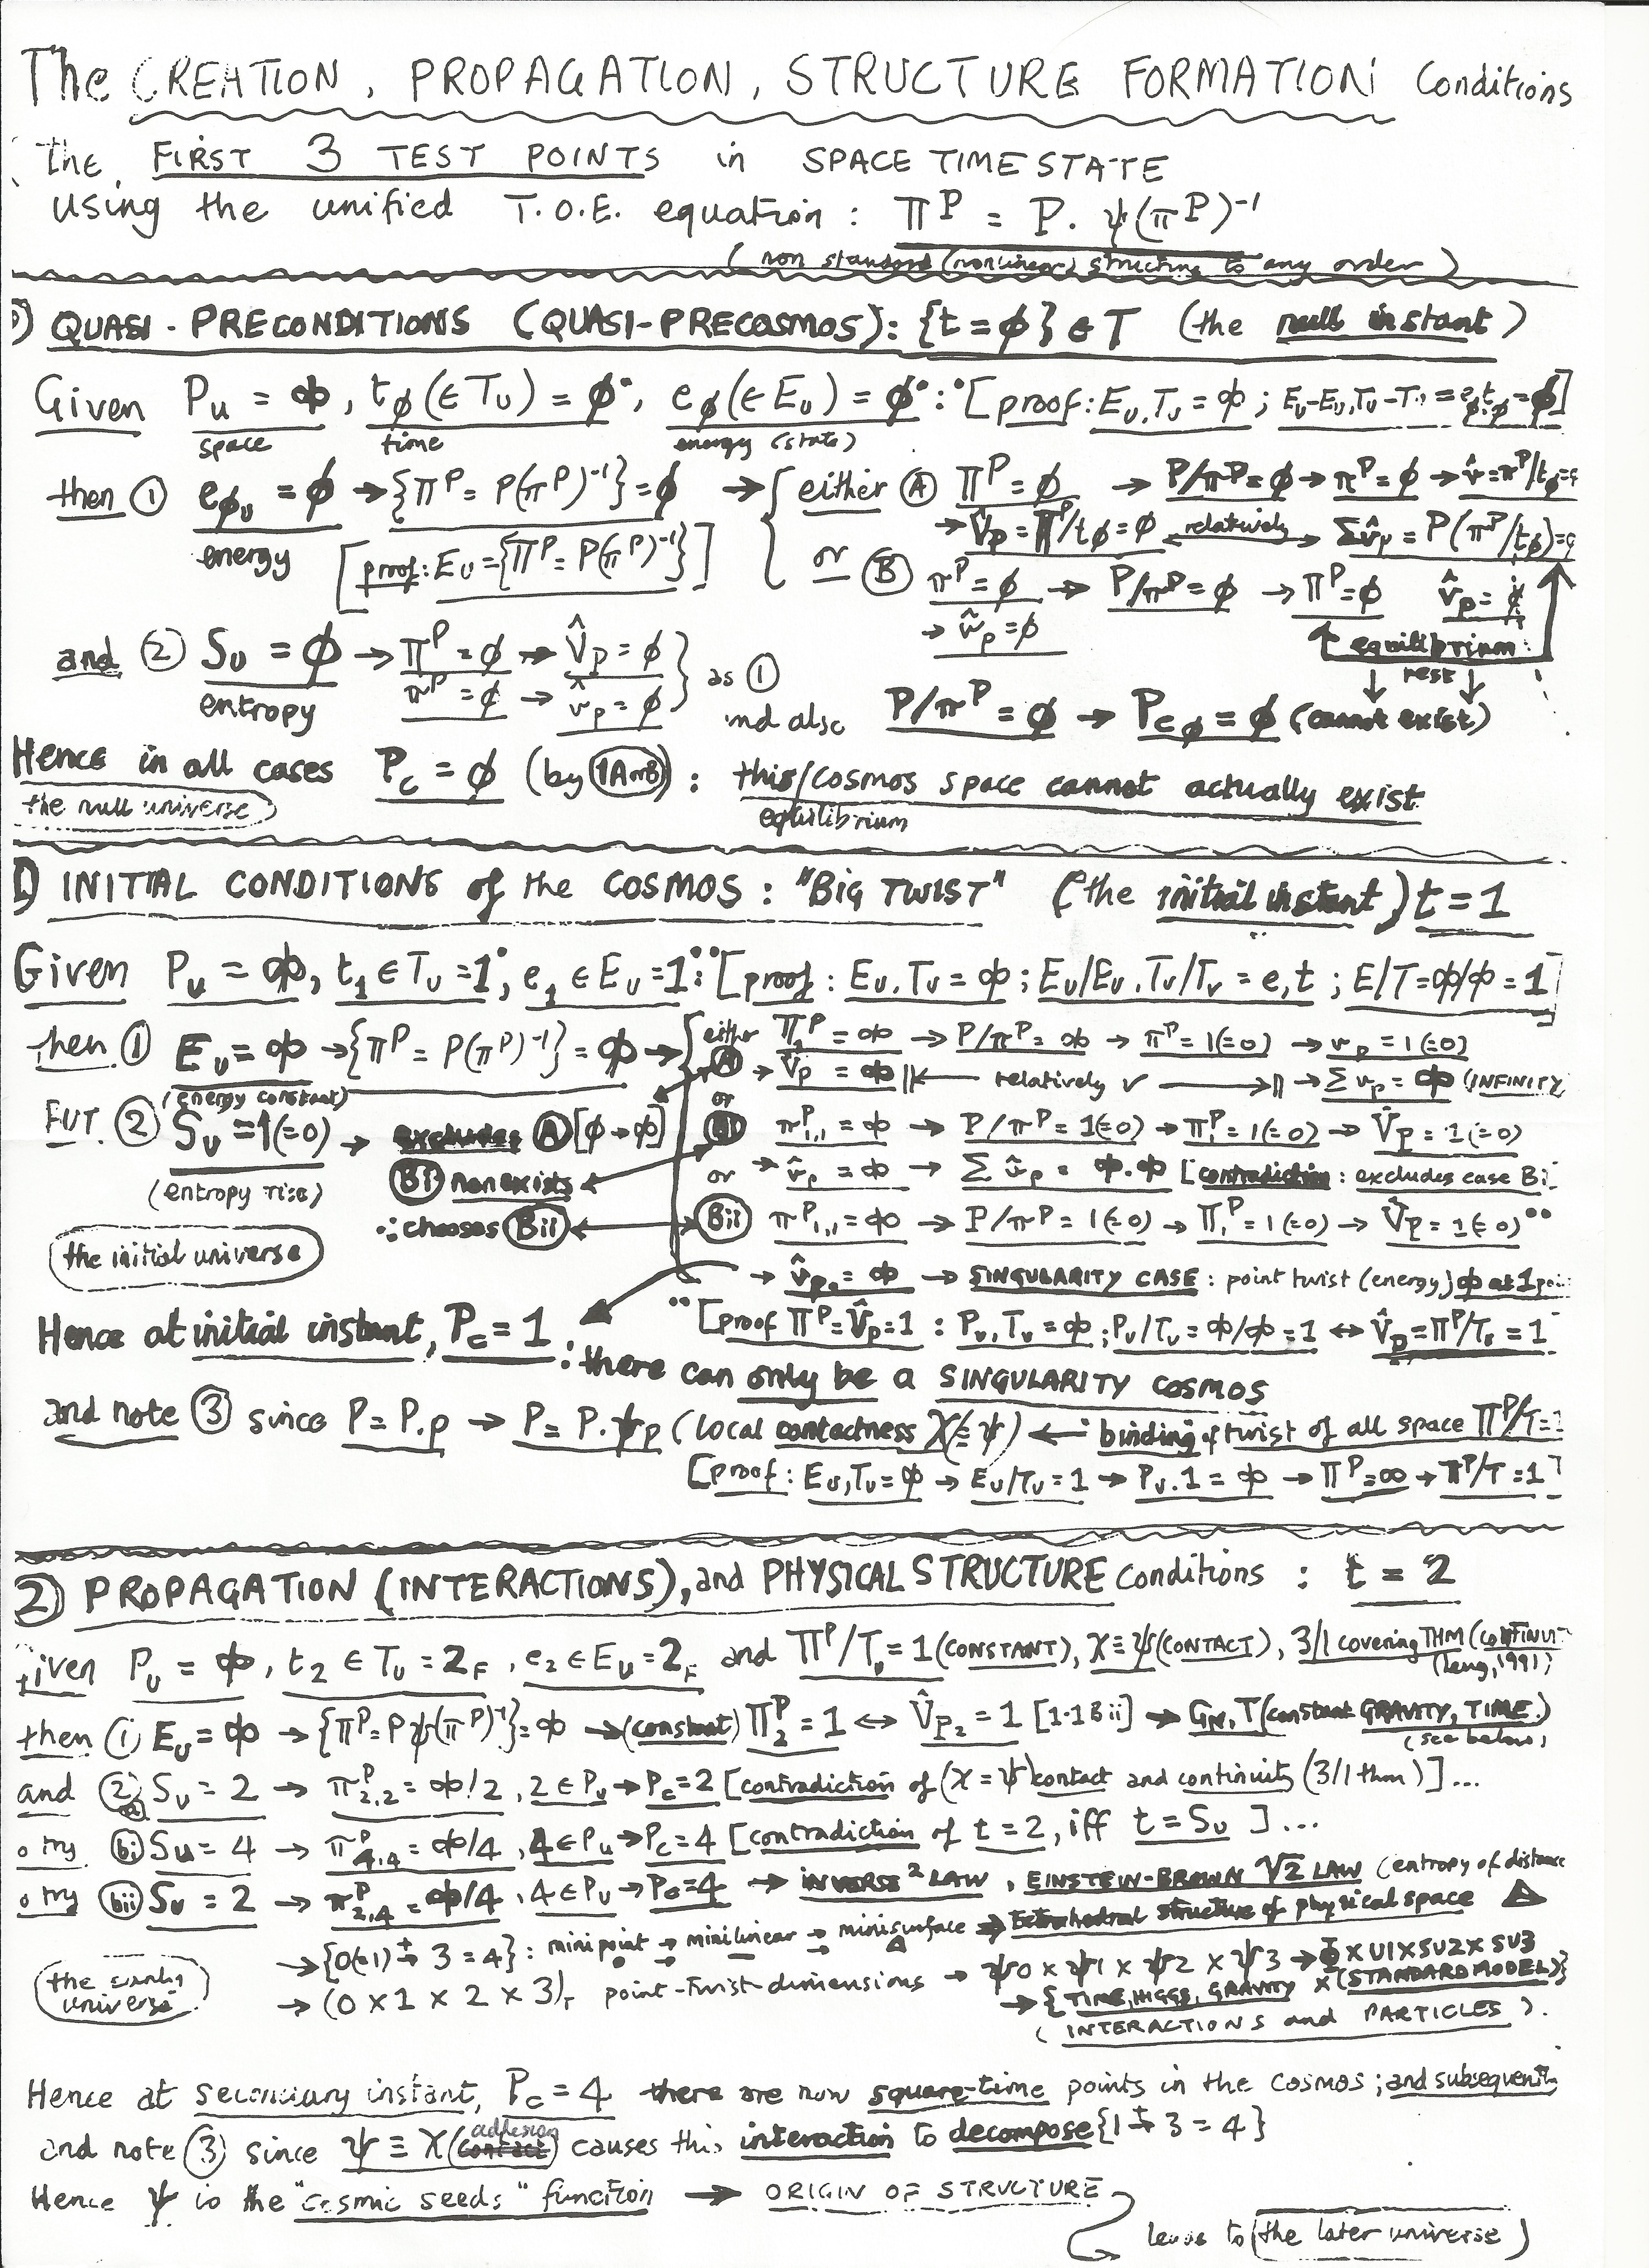 The CREATION, PROPAGATION, STRUCTURE FORMATION Conditions
The FIRST 3 TEST POINTS in SPACE TIME STATE
using the unified T.O.E. equation : Π^P = P. ψ(π^P)^-1
(non standard (nonlinear) structing to any order)
0) QUASI-PRECONDITIONS (QUASI-PRECOSMOS): {t=ϕ} ∈ T (the null instant)
Given P_U = ф, t_ϕ(∈T_U) = ϕ°, e_ϕ(∈E_U) = ϕ° : °[proof: E_U.T_U = ф ; E_U-E_U.T_U-T_U = e_ϕ.t_ϕ = ϕ]
space time energy (state)
then ① e_ϕU = ϕ → {Π^P = P(π^P)^-1} = ϕ → either Ⓐ Π^P = ϕ → P/π^P = ϕ → π^P = ϕ → v̂ = π^P/t_ϕ =
→ V̂_P = Π^P/t_ϕ = ϕ ← relatively → Σv̂_P = P(π^P/t_ϕ) =
energy [proof: E_U = {Π^P = P(π^P)^-1}]
or Ⓑ π^P = ϕ → P/π^P = ϕ → Π^P = ϕ V̂_P = ϕ
→ v̂_P = ϕ
↑ equilibrium
and ② S_U = ϕ → Π^P = ϕ → V̂_P = ϕ } as ①
rest
entropy π^P = ϕ → v̂_P = ϕ
and also P/π^P = ϕ → P_Cϕ = ϕ (cannot exist)
Hence in all cases P_C = ϕ (by 1A or B) : this/cosmos space cannot actually exist
the null universe equilibrium
1) INITIAL CONDITIONS of the COSMOS : "BIG TWIST" (the initial instant) t = 1
Given P_U = ф, t_1 ∈ T_U = 1°, e_1 ∈ E_U = 1° : °[proof : E_U.T_U = ф ; E_U/E_U.T_U/T_U = e,t ; E/T = ф/ф = 1]
then ① E_U = ф → {Π^P = P(π^P)^-1} = ф → either Ⓐ Π_1^P = ф → P/π^P = ф → π^P = 1(=0) → v_P = 1(=0)
(energy constant) → V̂_P = ф || ← relatively √ → || → Σv_P = ф (INFINITY
BUT ② S_U = 1(=0) → excludes Ⓐ [ϕ→ф]
or Bi π^P_1,1 = ф → P/π^P = 1(=0) → Π_1^P = 1(=0) → V̂_P = 1(=0)
(entropy rise) Bi non exists
→ v̂_P = ф → Σv̂_P = ф.ф [contradiction : excludes case Bi]
∴ chooses Bii
or Bii π^P_1,1 = ф → P/π^P = 1(=0) → Π_1^P = 1(=0) → V̂_P = 1(=0)°°
the initial universe
→ v̂_P = ф → SINGULARITY CASE : point twist (energy) ф at 1
Hence at initial instant, P_C = 1 :
°°[proof Π^P = V̂_P = 1 : P_U.T_U = ф ; P_U/T_U = ф/ф = 1 ↔ V̂_P = Π^P/T_U = 1
there can only be a SINGULARITY COSMOS
and note ③ since P = P.p → P = P.ψp (local contactness χ≡ψ) ← binding of twist of all space Π^P/T=1
[proof : E_U,T_U = ф → E_U/T_U = 1 → P_U.1 = ф → Π^P = ∞ → Π^P/T = 1]
2) PROPAGATION (INTERACTIONS), and PHYSICAL STRUCTURE conditions : t = 2
given P_U = ф, t_2 ∈ T_U = 2_F, e_2 ∈ E_U = 2_F and Π^P/T_U = 1 (CONSTANT), χ≡ψ (CONTACT), 3/1 covering THM
(Leng, 1991)
then ① E_U = ф → {Π^P = Pψ(π^P)^-1} = ф → (constant) Π_2^P = 1 ↔ V̂_P2 = 1 [1·1Bii] → G_N, T (constant GRAVITY, TIME)
(see below)
and ② a S_U = 2 → π^P_2,2 = ф/2, 2 ∈ P_U → P_C = 2 [contradiction of (χ=ψ) contact and continuity (3/1 thm)]...
o try bi S_U = 4 → π^P_4,4 = ф/4, 4 ∈ P_U → P_C = 4 [contradiction of t = 2, iff t = S_U ]...
o try bii S_U = 2 → π^P_2,4 = ф/4, 4 ∈ P_U → P_C = 4 → INVERSE² LAW, EINSTEIN-BROWN √2 LAW (entropy of distance
→ {0(=1) + 3 = 4} : minipoint → minilinear → minisurface → tetrahedral structure of physical space
the early universe
→ (0 x 1 x 2 x 3) point-twist-dimensions → ψ0 x ψ1 x ψ2 x ψ3 → Φ x U1 x SU2 x SU3
→ {TIME, HIGGS, GRAVITY x (STANDARD MODEL)}
(INTERACTIONS and PARTICLES).
Hence at secondary instant, P_C = 4 there are now square-time points in the cosmos ; and subsequently
and note ③ since ψ ≡ χ (adhesion) causes this interaction to decompose {1 + 3 = 4}
Hence ψ is the "cosmic seeds" function → ORIGIN OF STRUCTURE
leads to (the later universe)